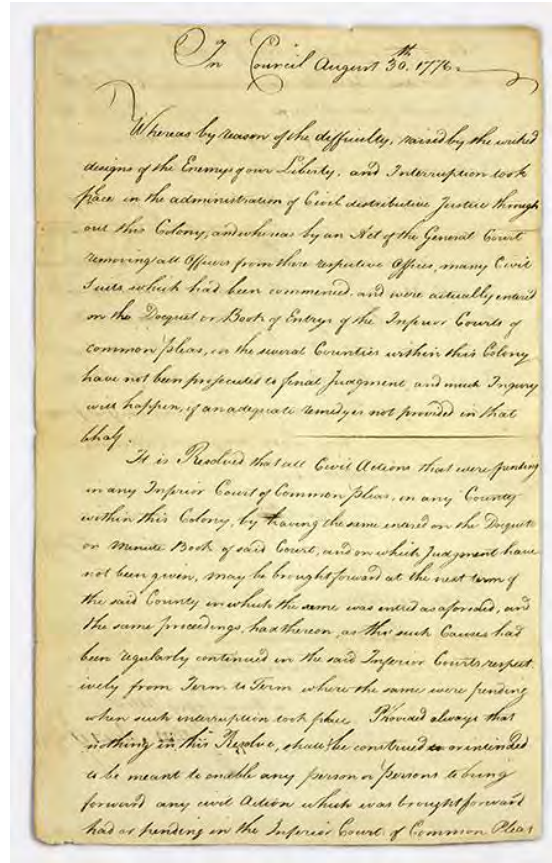 In Council August 30th. 1776.
Whereas by reason of the difficulty, raised by the wicked
designs of the Enemys of our Liberty, and Interruption took
place in the administration of Civil distributive Justice through
out this Colony, and whereas by an Act of the General Court
removing all Officers from there respective Offices, many Civil
Suits which had been commenced, and were actually entered
on the Docquet or Book of Entrys of the Inferior Courts of
common pleas, in the several Counties within this Colony
have not been prosecuted to final Judgment and much Injury
will happen, if an adequate remedy is not provided in that
bhalf.
It is Resolved that all Civil Actions that were pending
in any Inferior Court of Common pleas, in any County
within this Colony, by having the same entered on the Docquett
or Minute Book of said Court, and on which Judgment have
not been given, may be brought forward at the next term of
the said County in which the same was entred as aforesaid, and
the same proceedings, had thereon, as tho such Causes had
been regularly continued in the said Inferior Courts respect
ively from Term to Term where the same were pending
when such interruption took place. Provided always that
nothing in this Resolve, shall be construed or intended
to be meant to enable any person or persons to bring
forward any civil Action which was brought forward
had or pending in the Inferior Court of Common Pleas